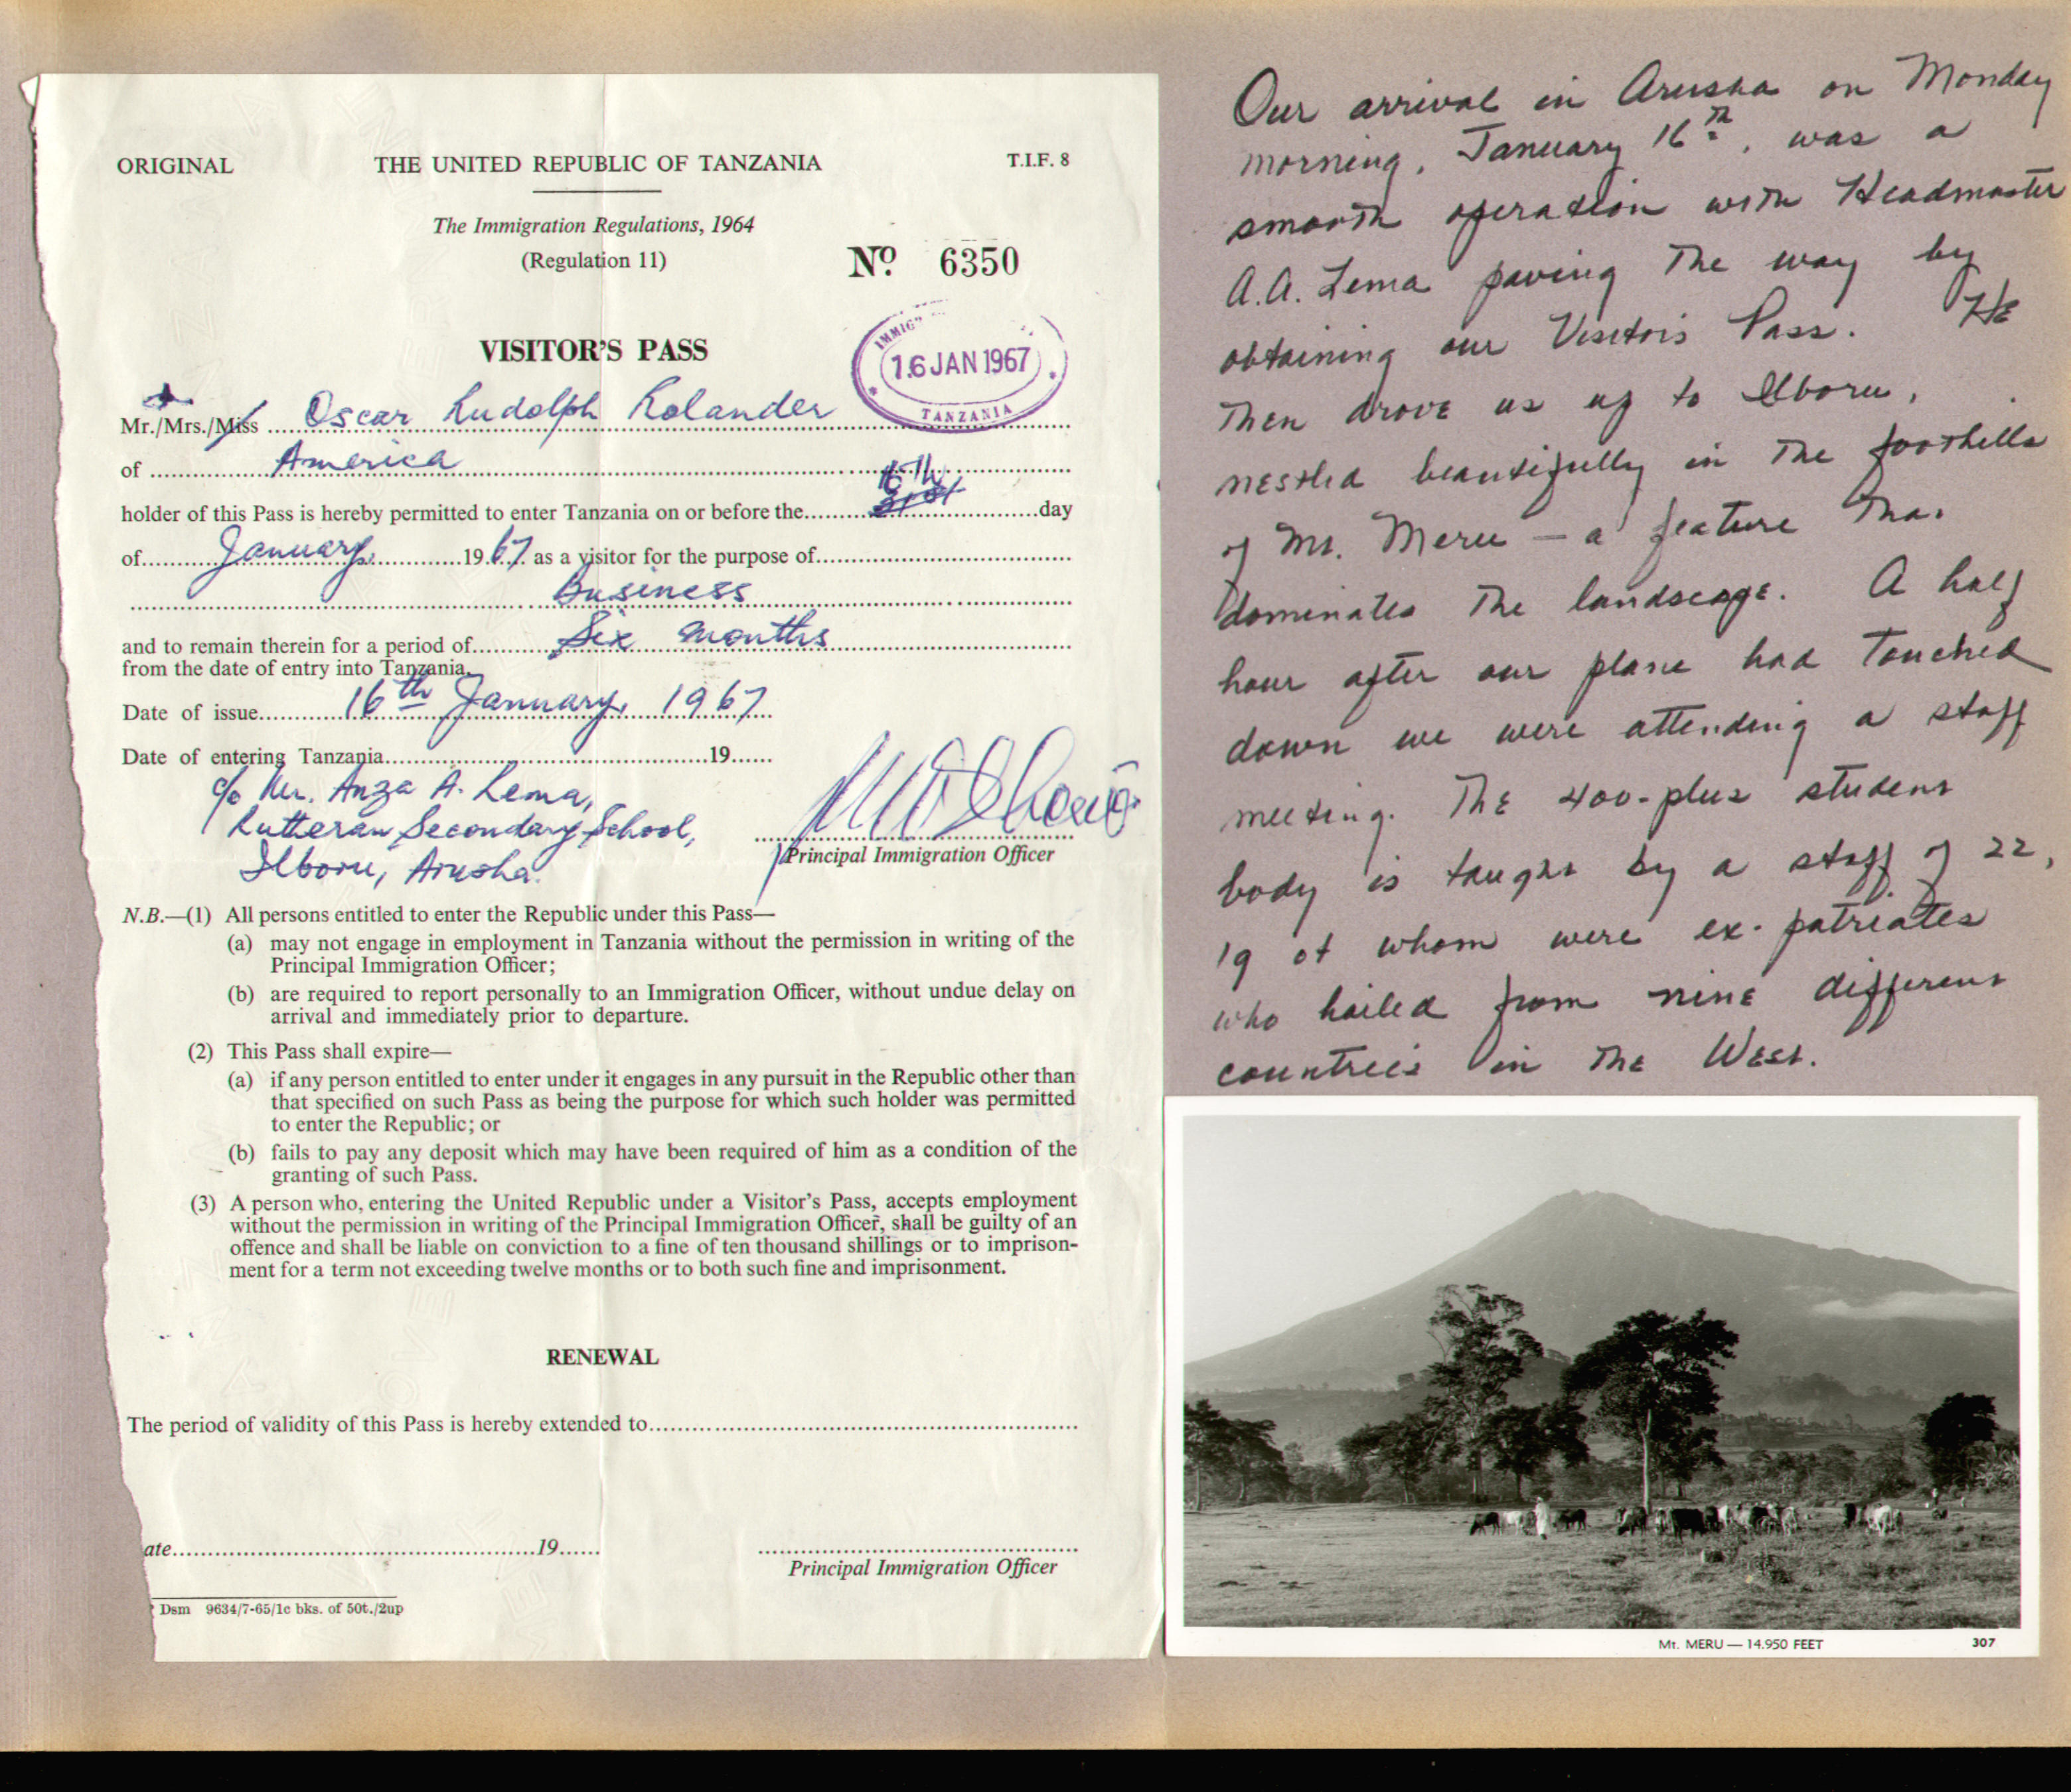 ORIGINAL THE UNITED REPUBLIC OF TANZANIA T.I.F. 8
The Immigration Regulations, 1964
(Regulation 11)
Nº 6350
VISITOR'S PASS
16 JAN 1967
TANZANIA
Mr./Mrs./Miss Oscar Rudolph Rolander
of America
16th
holder of this Pass is hereby permitted to enter Tanzania on or before the 31st day
of January 1967 as a visitor for the purpose of
Business
and to remain therein for a period of Six months
from the date of entry into Tanzania.
Date of issue 16th January, 1967
Date of entering Tanzania 19
c/o Mr. Anza A. Lema,
Lutheran Secondary School,
Ilboru, Arusha.
Principal Immigration Officer
N.B.—(1) All persons entitled to enter the Republic under this Pass—
(a) may not engage in employment in Tanzania without the permission in writing of the
Principal Immigration Officer;
(b) are required to report personally to an Immigration Officer, without undue delay on
arrival and immediately prior to departure.
(2) This Pass shall expire—
(a) if any person entitled to enter under it engages in any pursuit in the Republic other than
that specified on such Pass as being the purpose for which such holder was permitted
to enter the Republic; or
(b) fails to pay any deposit which may have been required of him as a condition of the
granting of such Pass.
(3) A person who, entering the United Republic under a Visitor's Pass, accepts employment
without the permission in writing of the Principal Immigration Officer, shall be guilty of an
offence and shall be liable on conviction to a fine of ten thousand shillings or to imprison-
ment for a term not exceeding twelve months or to both such fine and imprisonment.
RENEWAL
The period of validity of this Pass is hereby extended to
ate 19
Principal Immigration Officer
Dsm 9634/7-65/1c bks. of 50t./2up
Our arrival in Arusha on Monday
morning, January 16th, was a
smooth operation with Headmaster
A.A. Lema paving the way by
obtaining our Visitor's Pass. He
then drove us up to Ilboru,
nestled beautifully in the foothills
of Mt. Meru — a feature that
dominates the landscape. A half
hour after our plane had touched
down we were attending a staff
meeting. The 400-plus student
body is taught by a staff of 22,
19 of whom were ex-patriates
who hailed from nine different
countries in the West.
Mt. MERU — 14.950 FEET 307